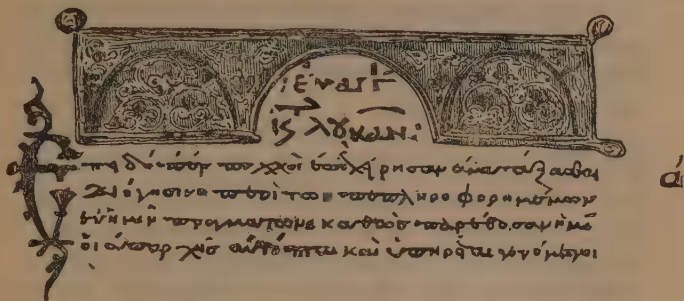 εὐαγγ
κτ λουκαν:
Ἐπειδήπερ πολλοὶ ἐπεχείρησαν ἀνατάξασθαι
διήγησιν περὶ των πεπληροφορημένων
ἐν ἡμῖν πραγμάτων· καθὼς παρέδοσαν ἡμῖ
οἱ ἀπαρχῆς αὐτόπται καὶ ὑπηρέται γενόμενοι
ά